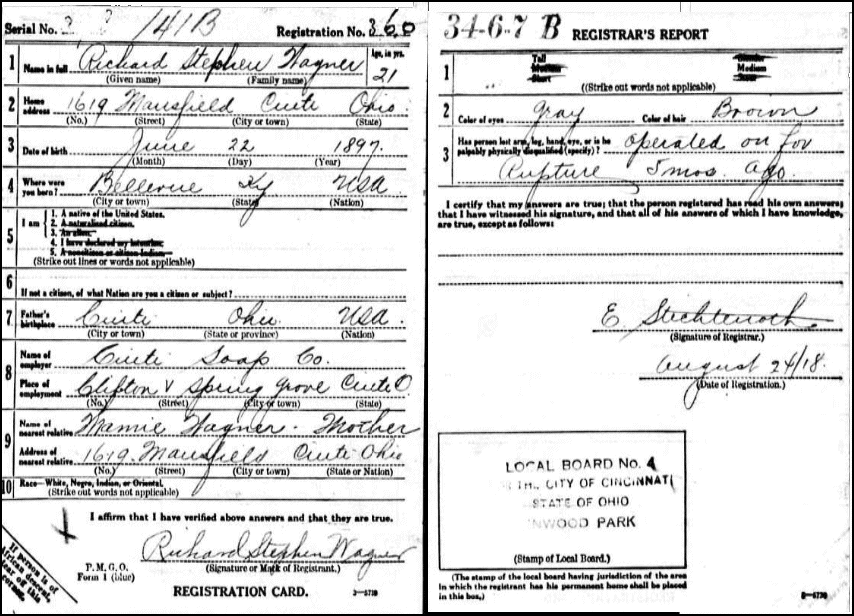 Serial No. 141B Registration No. 360
1 Name in full Richard Stephen Wagner Age, in yrs. 21
(Given name) (Family name)
2 Home address 1619 Mansfield Cinti Ohio
(No.) (Street) (City or town) (State)
3 Date of birth June 22 1897.
(Month) (Day) (Year)
4 Where were you born? Bellevue Ky USA
(City or town) (State) (Nation)
5 I am
1. A native of the United States.
2. A naturalized citizen.
3. An alien.
4. I have declared my intention.
5. A noncitizen or citizen Indian.
(Strike out lines or words not applicable)
6
If not a citizen, of what Nation are you a citizen or subject?
7 Father's birthplace Cinti Ohio USA.
(City or town) (State or province) (Nation)
8 Name of employer Cinti Soap Co.
Place of employment Clifton & Spring Grove Cinti O
(No.) (Street) (City or town) (State)
9 Name of nearest relative Mamie Wagner - Mother
Address of nearest relative 1619 Mansfield Cinti Ohio
(No.) (Street) (City or town) (State or Nation)
10 Race—White, Negro, Indian, or Oriental.
(Strike out words not applicable)
I affirm that I have verified above answers and that they are true.
Richard Stephen Wagner
P. M. G. O. (Signature or Mark of Registrant.)
Form 1 (blue)
REGISTRATION CARD.
If person is of African descent, tear off this corner.
34-6-7 B REGISTRAR'S REPORT
1 Tall Slender
Medium Medium
Short Stout
((Strike out words not applicable)
2 Color of eyes Gray Color of hair Brown
3 Has person lost arm, leg, hand, eye, or is he palpably physically disqualified (specify)? Operated on for
Rupture 5 mos. ago.
I certify that my answers are true; that the person registered has read his own answers;
that I have witnessed his signature, and that all of his answers of which I have knowledge,
are true, except as follows:
E Stichtenoth
(Signature of Registrar.)
August 24/18.
(Date of Registration.)
LOCAL BOARD No. 4
CITY OF CINCINNATI
STATE OF OHIO
NWOOD PARK
(Stamp of Local Board.)
(The stamp of the local board having jurisdiction of the area
in which the registrant has his permanent home shall be placed
in this box.)